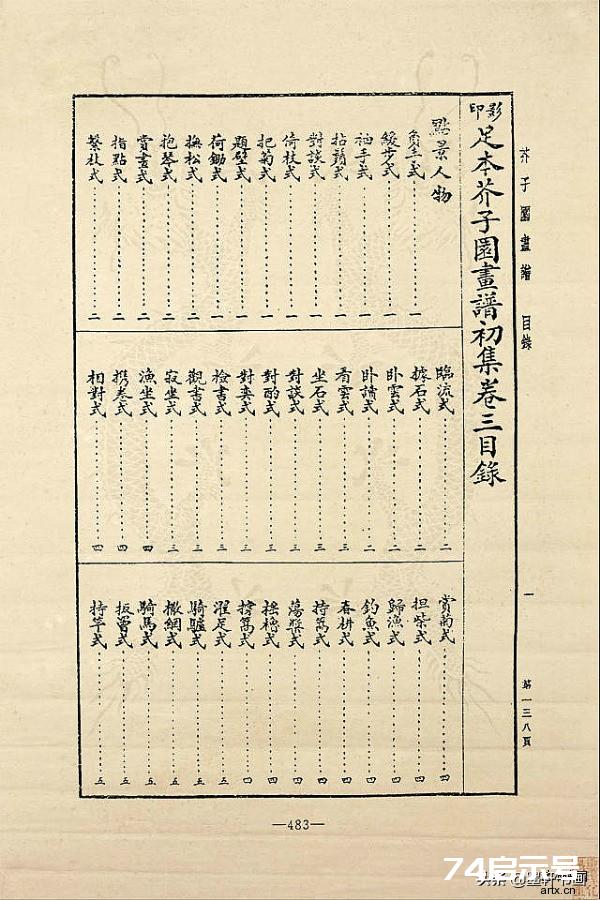 芥子園畫譜 目錄 一 第一三八頁
影印足本芥子園畫譜初集卷三目錄
點景人物
負手式 一
緩步式 一
袖手式 一
拈鬚式 一
對談式 一
倚杖式 一
把菊式 一
題壁式 一
荷鋤式 一
撫松式 二
抱琴式 二
賞畫式 二
指點式 二
藜杖式 二
臨流式 二
據石式 二
卧雲式 二
卧讀式 二
看雲式 三
坐石式 三
對談式 三
對酌式 三
對奕式 三
檢書式 三
觀書式 三
寂坐式 三
漁坐式 四
携卷式 四
相對式 四
賞菊式 四
担柴式 四
歸漁式 四
釣魚式 四
春耕式 四
持篙式 四
蕩槳式 四
搖櫓式 四
撐篙式 四
濯足式 五
騎驢式 五
撒網式 五
騎馬式 五
扳罾式 五
持竿式 五
—483—
74启示号
artx.cn